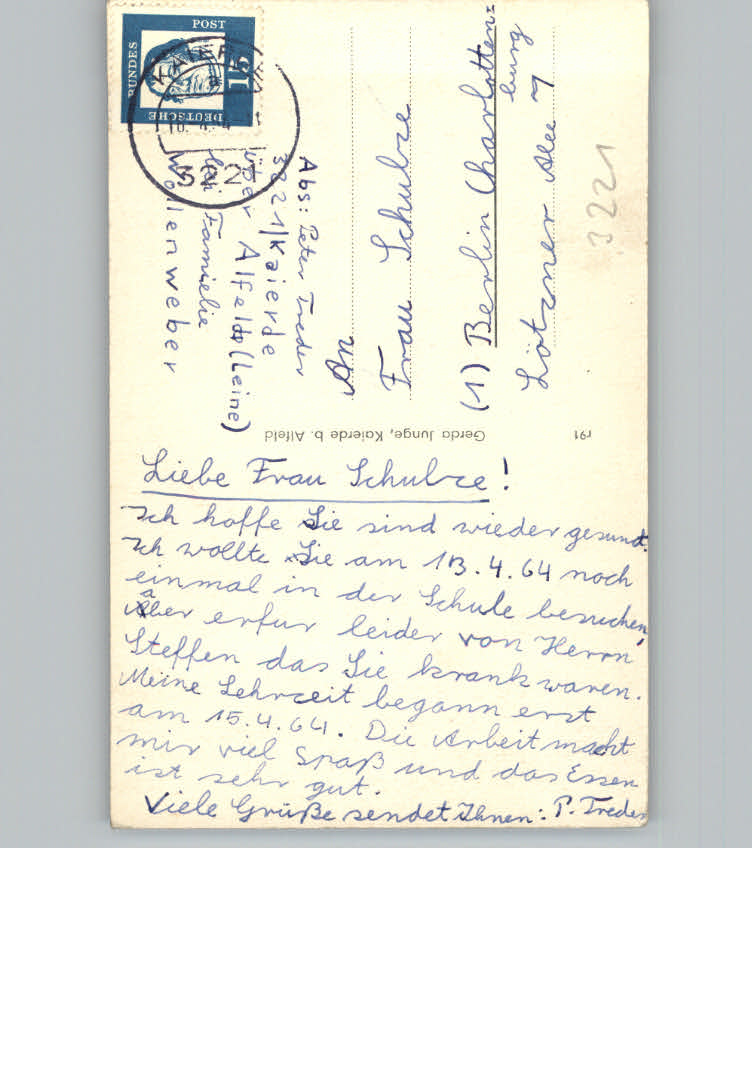 Liebe Frau Schulze!
Ich hoffe Sie sind wieder gesund.
Ich wollte Sie am 13.4.64 noch
einmal in der Schule besuchen,
aber erfur leider von Herrn
Steffen das Sie krank waren.
Meine Lehrzeit begann erst
am 15.4.64. Die Arbeit macht
mir viel Spaß und das Essen
ist sehr gut.
Viele Grüße sendet Ihnen: P. Treder
Abs: Peter Treder
3221/Kaierde
über Alfeld (Leine)
bei Familie
Wollenweber
An
Frau Schulze
(1) Berlin Charlotten=
burg
Lötzner Alee 7
3221
r91
Gerda Junge, Kaierde b. Alfeld
DEUTSCHE
BUNDES
POST
15
KAIERDE
3221